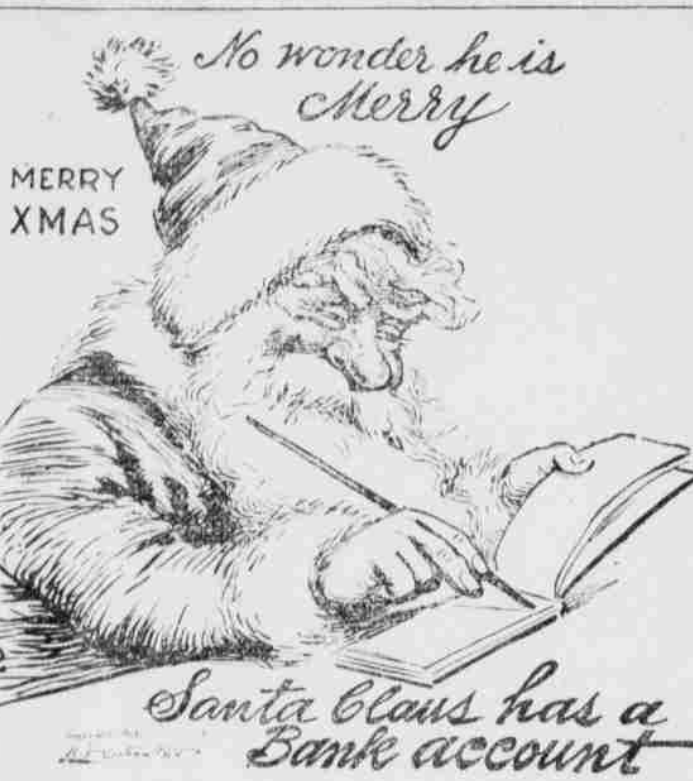 No wonder he is
Merry
MERRY
XMAS
Santa Claus has a
Bank account